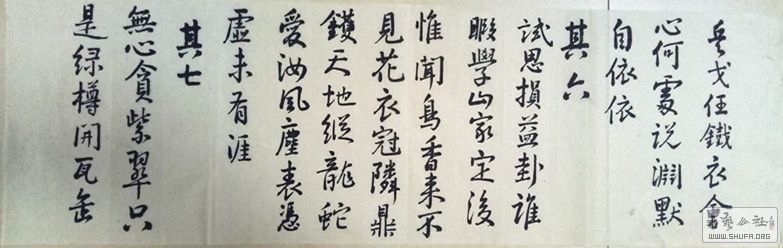 兵戈任鐵衣余
心何處说淵默
自依依
其六
試思損益卦誰
暇學山家定後
惟聞鳥香来不
見花衣冠隣鼎
鑊天地縱龍蛇
愛汝風塵表憑
虛未有涯
其七
無心貪紫翠只
是绿樽開瓦缶
書藝公社
WWW.SHUFA.ORG